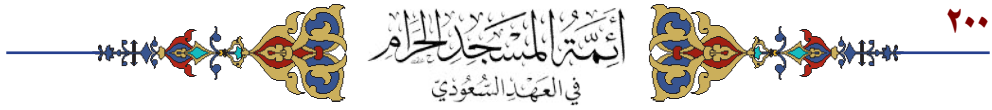 ٢٠٠
أَئِمَّةُ الْمَسْجِدِ الْحَرَامِ
فِي الْعَهْدِ السُّعُودِيِّ